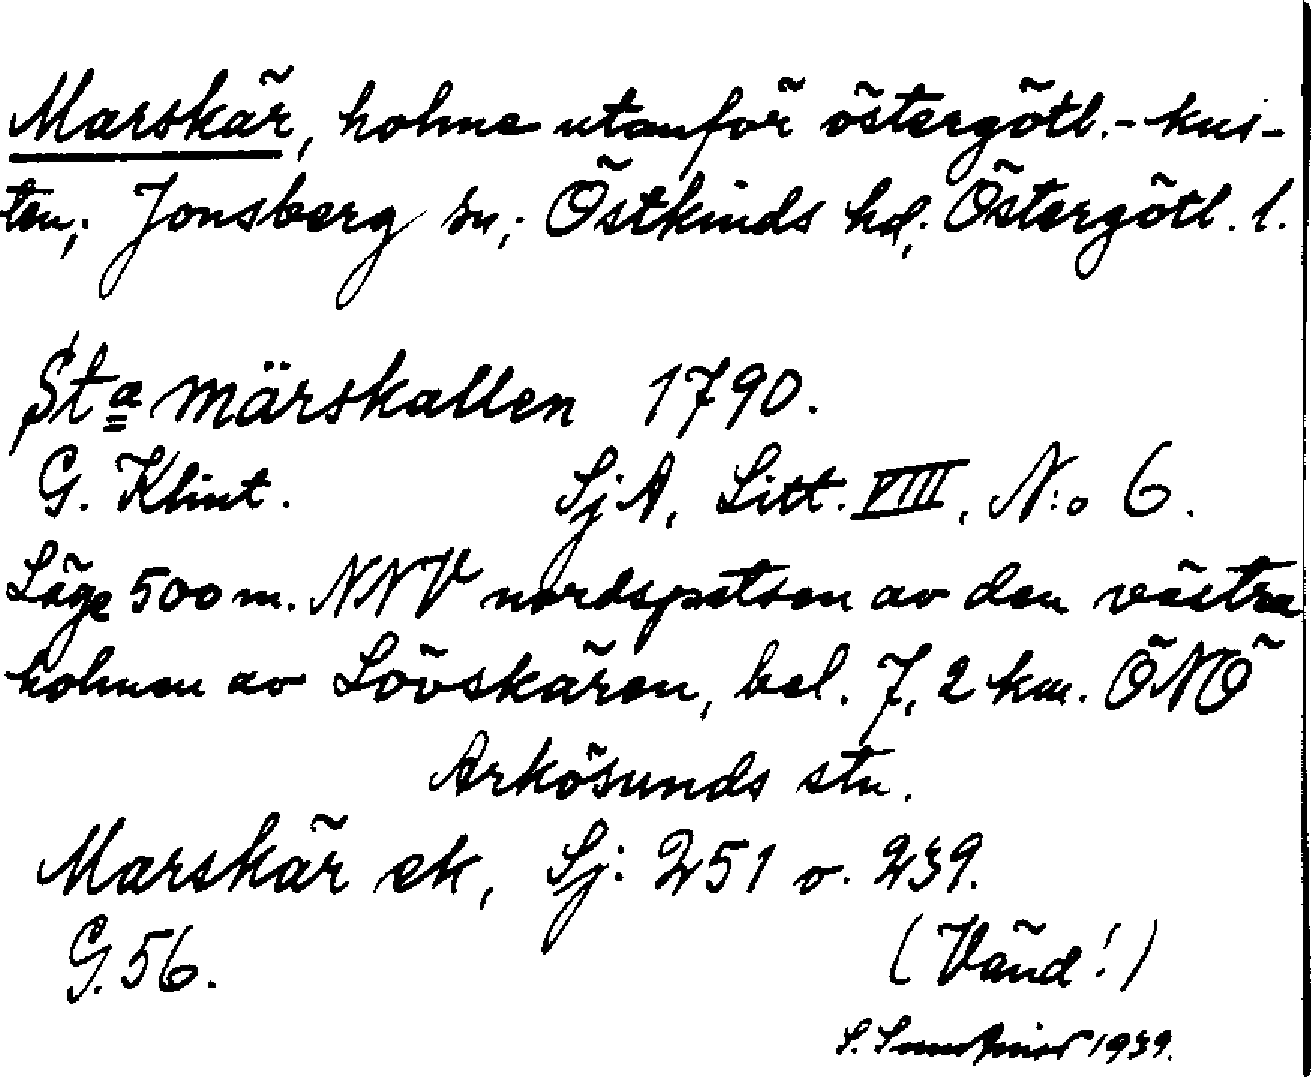 Marskär, holme utanför östergötl.-kus-
ten; Jonsberg sn; Östkinds hd; Östergötl. l.
Sta märskallen 1790.
G. Klint. SjA, Litt. VIII, N:o 6.
Läge 500 m. NNV nordspetsen av den västra
holmen av Lövskären, bel. 7,2 km. ÖNÖ
Arkösunds stn.
Marskär ek, Sj: 251 o. 239.
G. 56.
(Vänd!)
S. 1939.